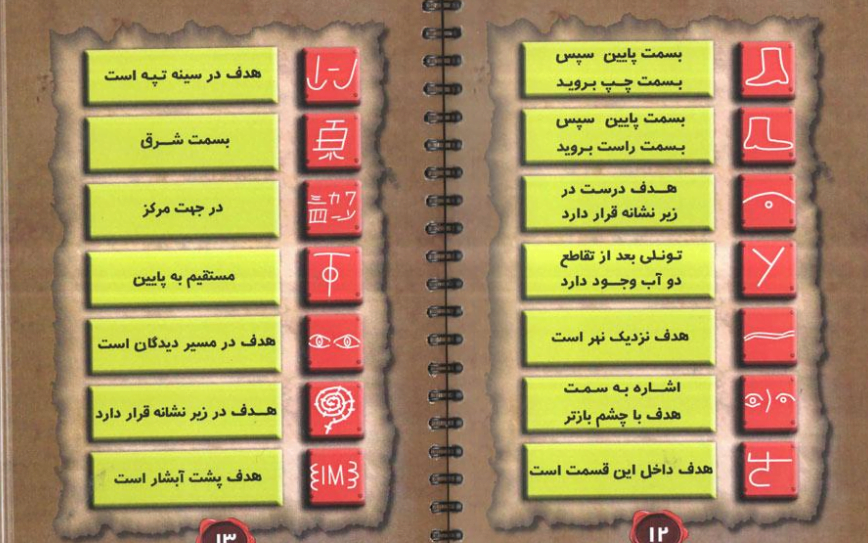 بسمت پایین سپس
بسمت چپ بروید
بسمت پایین سپس
بسمت راست بروید
هدف درست در
زیر نشانه قرار دارد
تونلی بعد از تقاطع
دو آب وجود دارد
هدف نزدیک نهر است
اشاره به سمت
هدف با چشم بازتر
هدف داخل این قسمت است
۱۲
هدف در سینه تپه است
بسمت شرق
در جهت مرکز
مستقیم به پایین
هدف در مسیر دیدگان است
هدف در زیر نشانه قرار دارد
هدف پشت آبشار است
۱۳